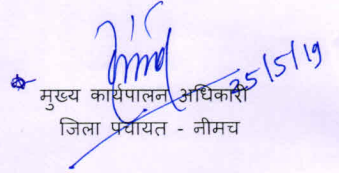 25/5/19
मुख्य कार्यपालन अधिकारी
जिला पंचायत - नीमच